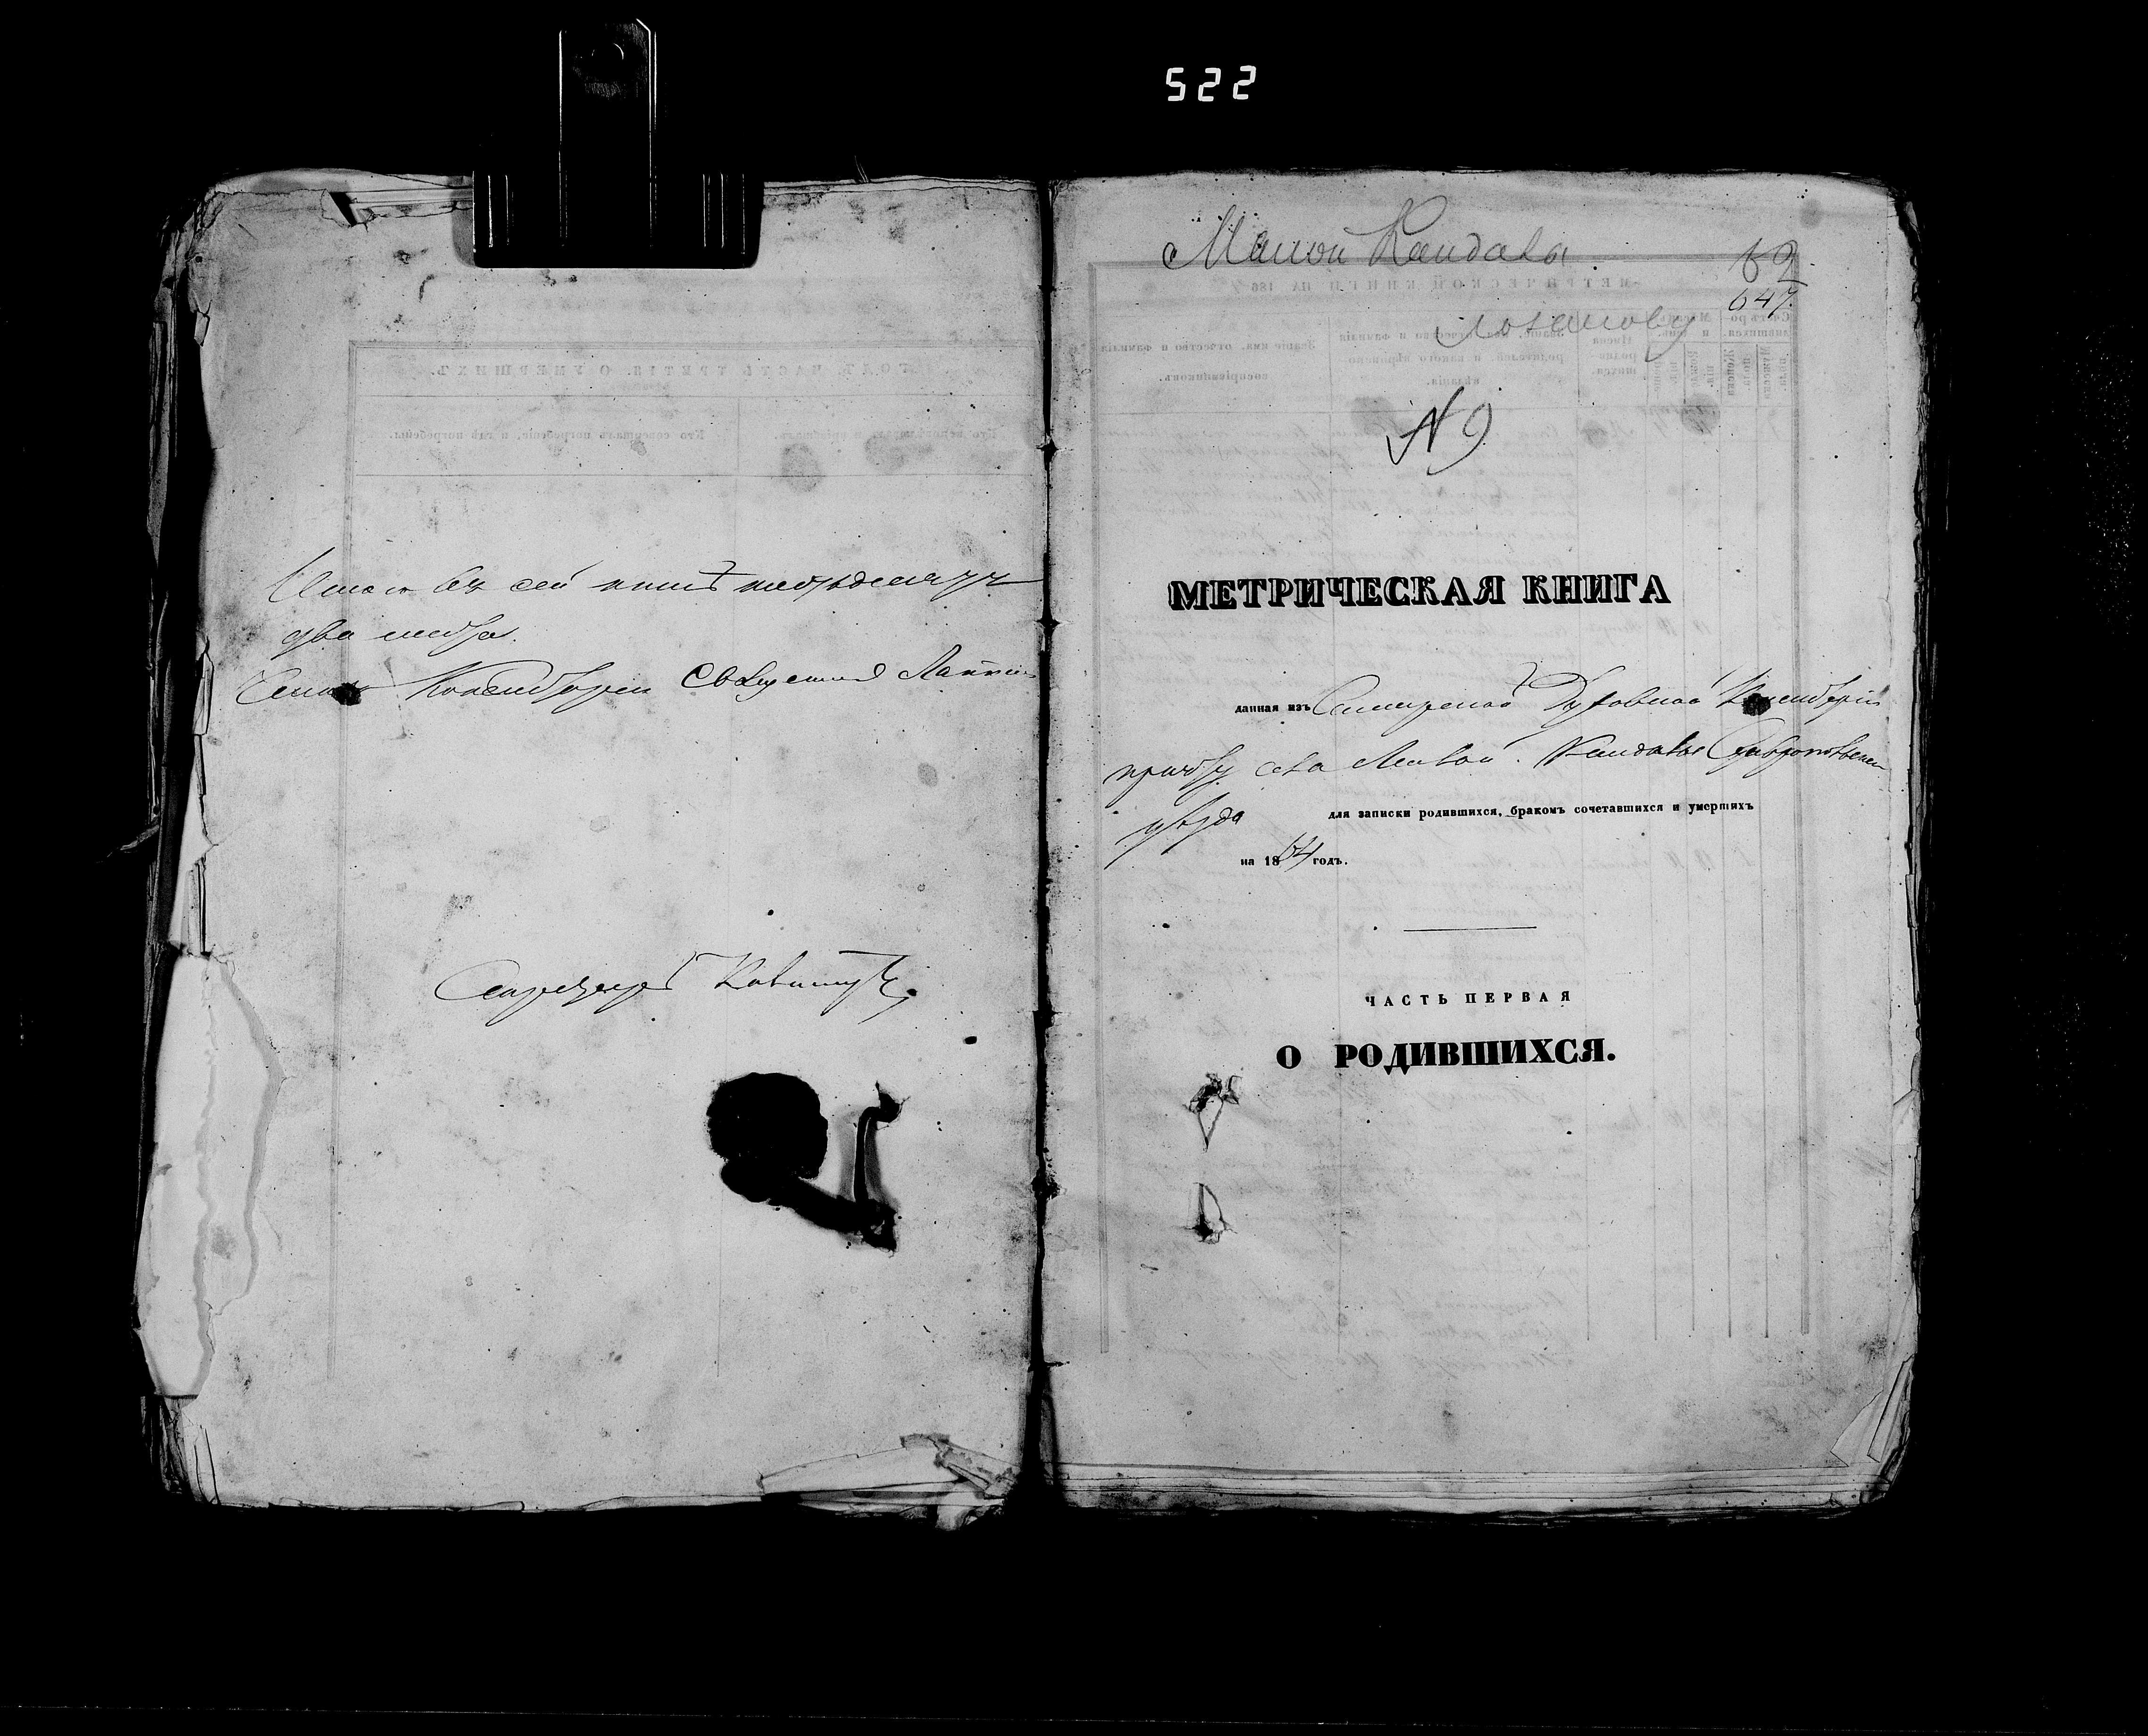 522
Итого въ сей книгѣ шестьдесятъ
два листа.
Членъ Консисторіи Священникъ
Секретарь
Малой Кандалы
62
647
N 9
МЕТРИЧЕСКАЯ КНИГА
данная изъ Самарской Духовной Консисторіи
причту села Малой Кандалы Ставропольскаго
уѣзда для записки родившихся, бракомъ сочетавшихся и умершихъ
на 1864 годъ.
ЧАСТЬ ПЕРВАЯ
О РОДИВШИХСЯ.